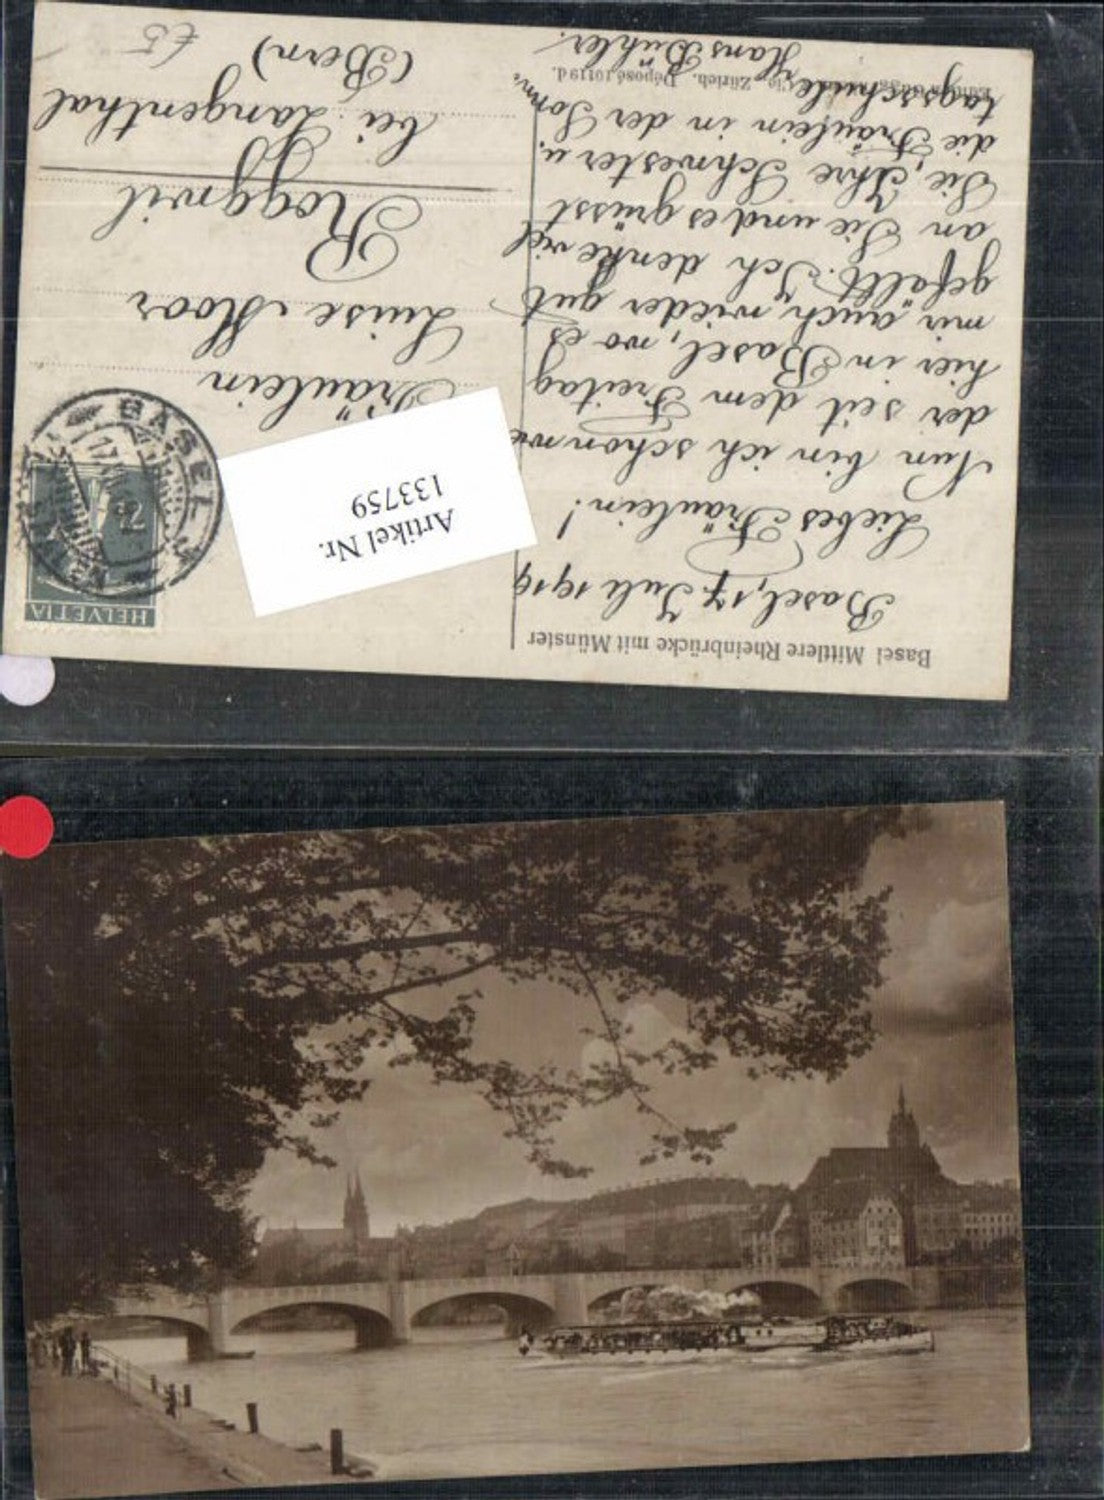 Basel Mittlere Rheinbrücke mit Münster
Basel, 17. Juli 1919
Liebes Fräulein!
Nun bin ich schon wie
der seit dem Freitag
hier in Basel, wo es
mir auch wieder gut
gefällt. Ich denke viel
an Sie und es grüsst
Sie, Ihre Schwester u.
die Fräulein in der Sonn-
tagsschule
Hans Bühler.
Zürich. Déposé 10119 d.
HELVETIA
7½
BASEL
Artikel Nr.
133759
Fräulein
Luise Moor
Roggwil
bei Langenthal
(Bern)
£5